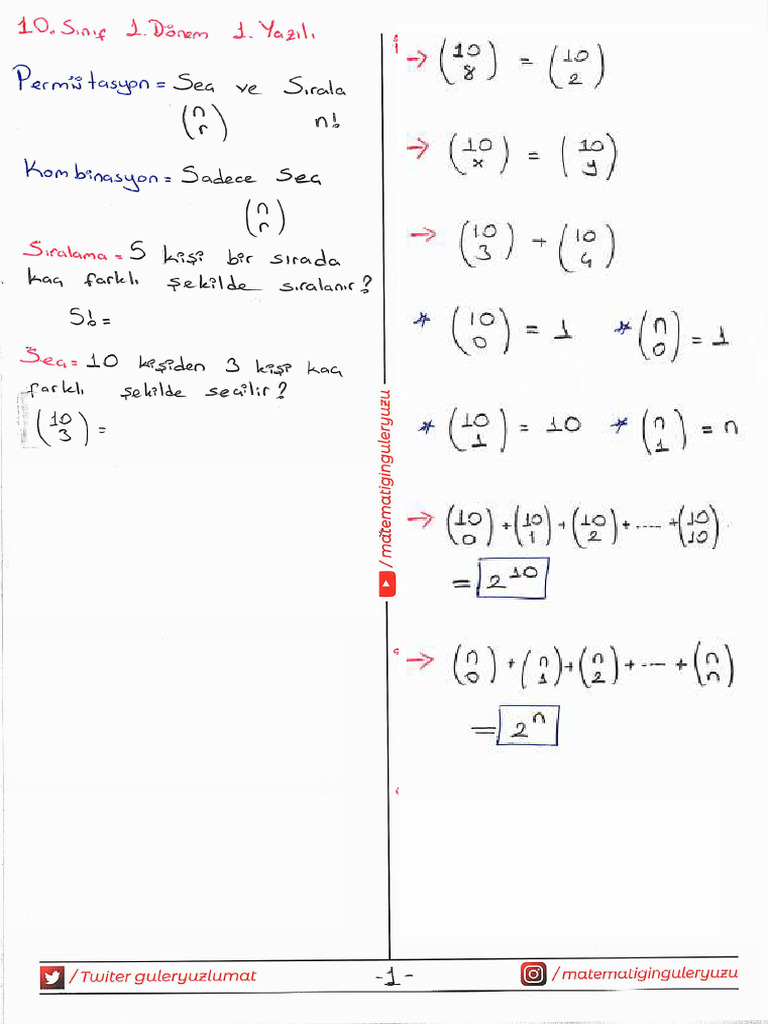 10. Sınıf 1. Dönem 1. Yazılı
Permütasyon = Seç ve Sırala
(n r) n!
Kombinasyon = Sadece Seç
(n r)
Sıralama = 5 kişi bir sırada
kaç farklı şekilde sıralanır?
5! =
Seç = 10 kişiden 3 kişi kaç
farklı şekilde seçilir?
(10 3) =
→ (10 8) = (10 2)
→ (10 x) = (10 y)
→ (10 3) + (10 4)
* (10 0) = 1 * (n 0) = 1
* (10 1) = 10 * (n 1) = n
→ (10 0) + (10 1) + (10 2) + ..... + (10 10)
= 2^10
→ (n 0) + (n 1) + (n 2) + ..... + (n n)
= 2^n
/matematiginguleryuzu
/Twiter guleryuzlumat
-1-
/matematiginguleryuzu